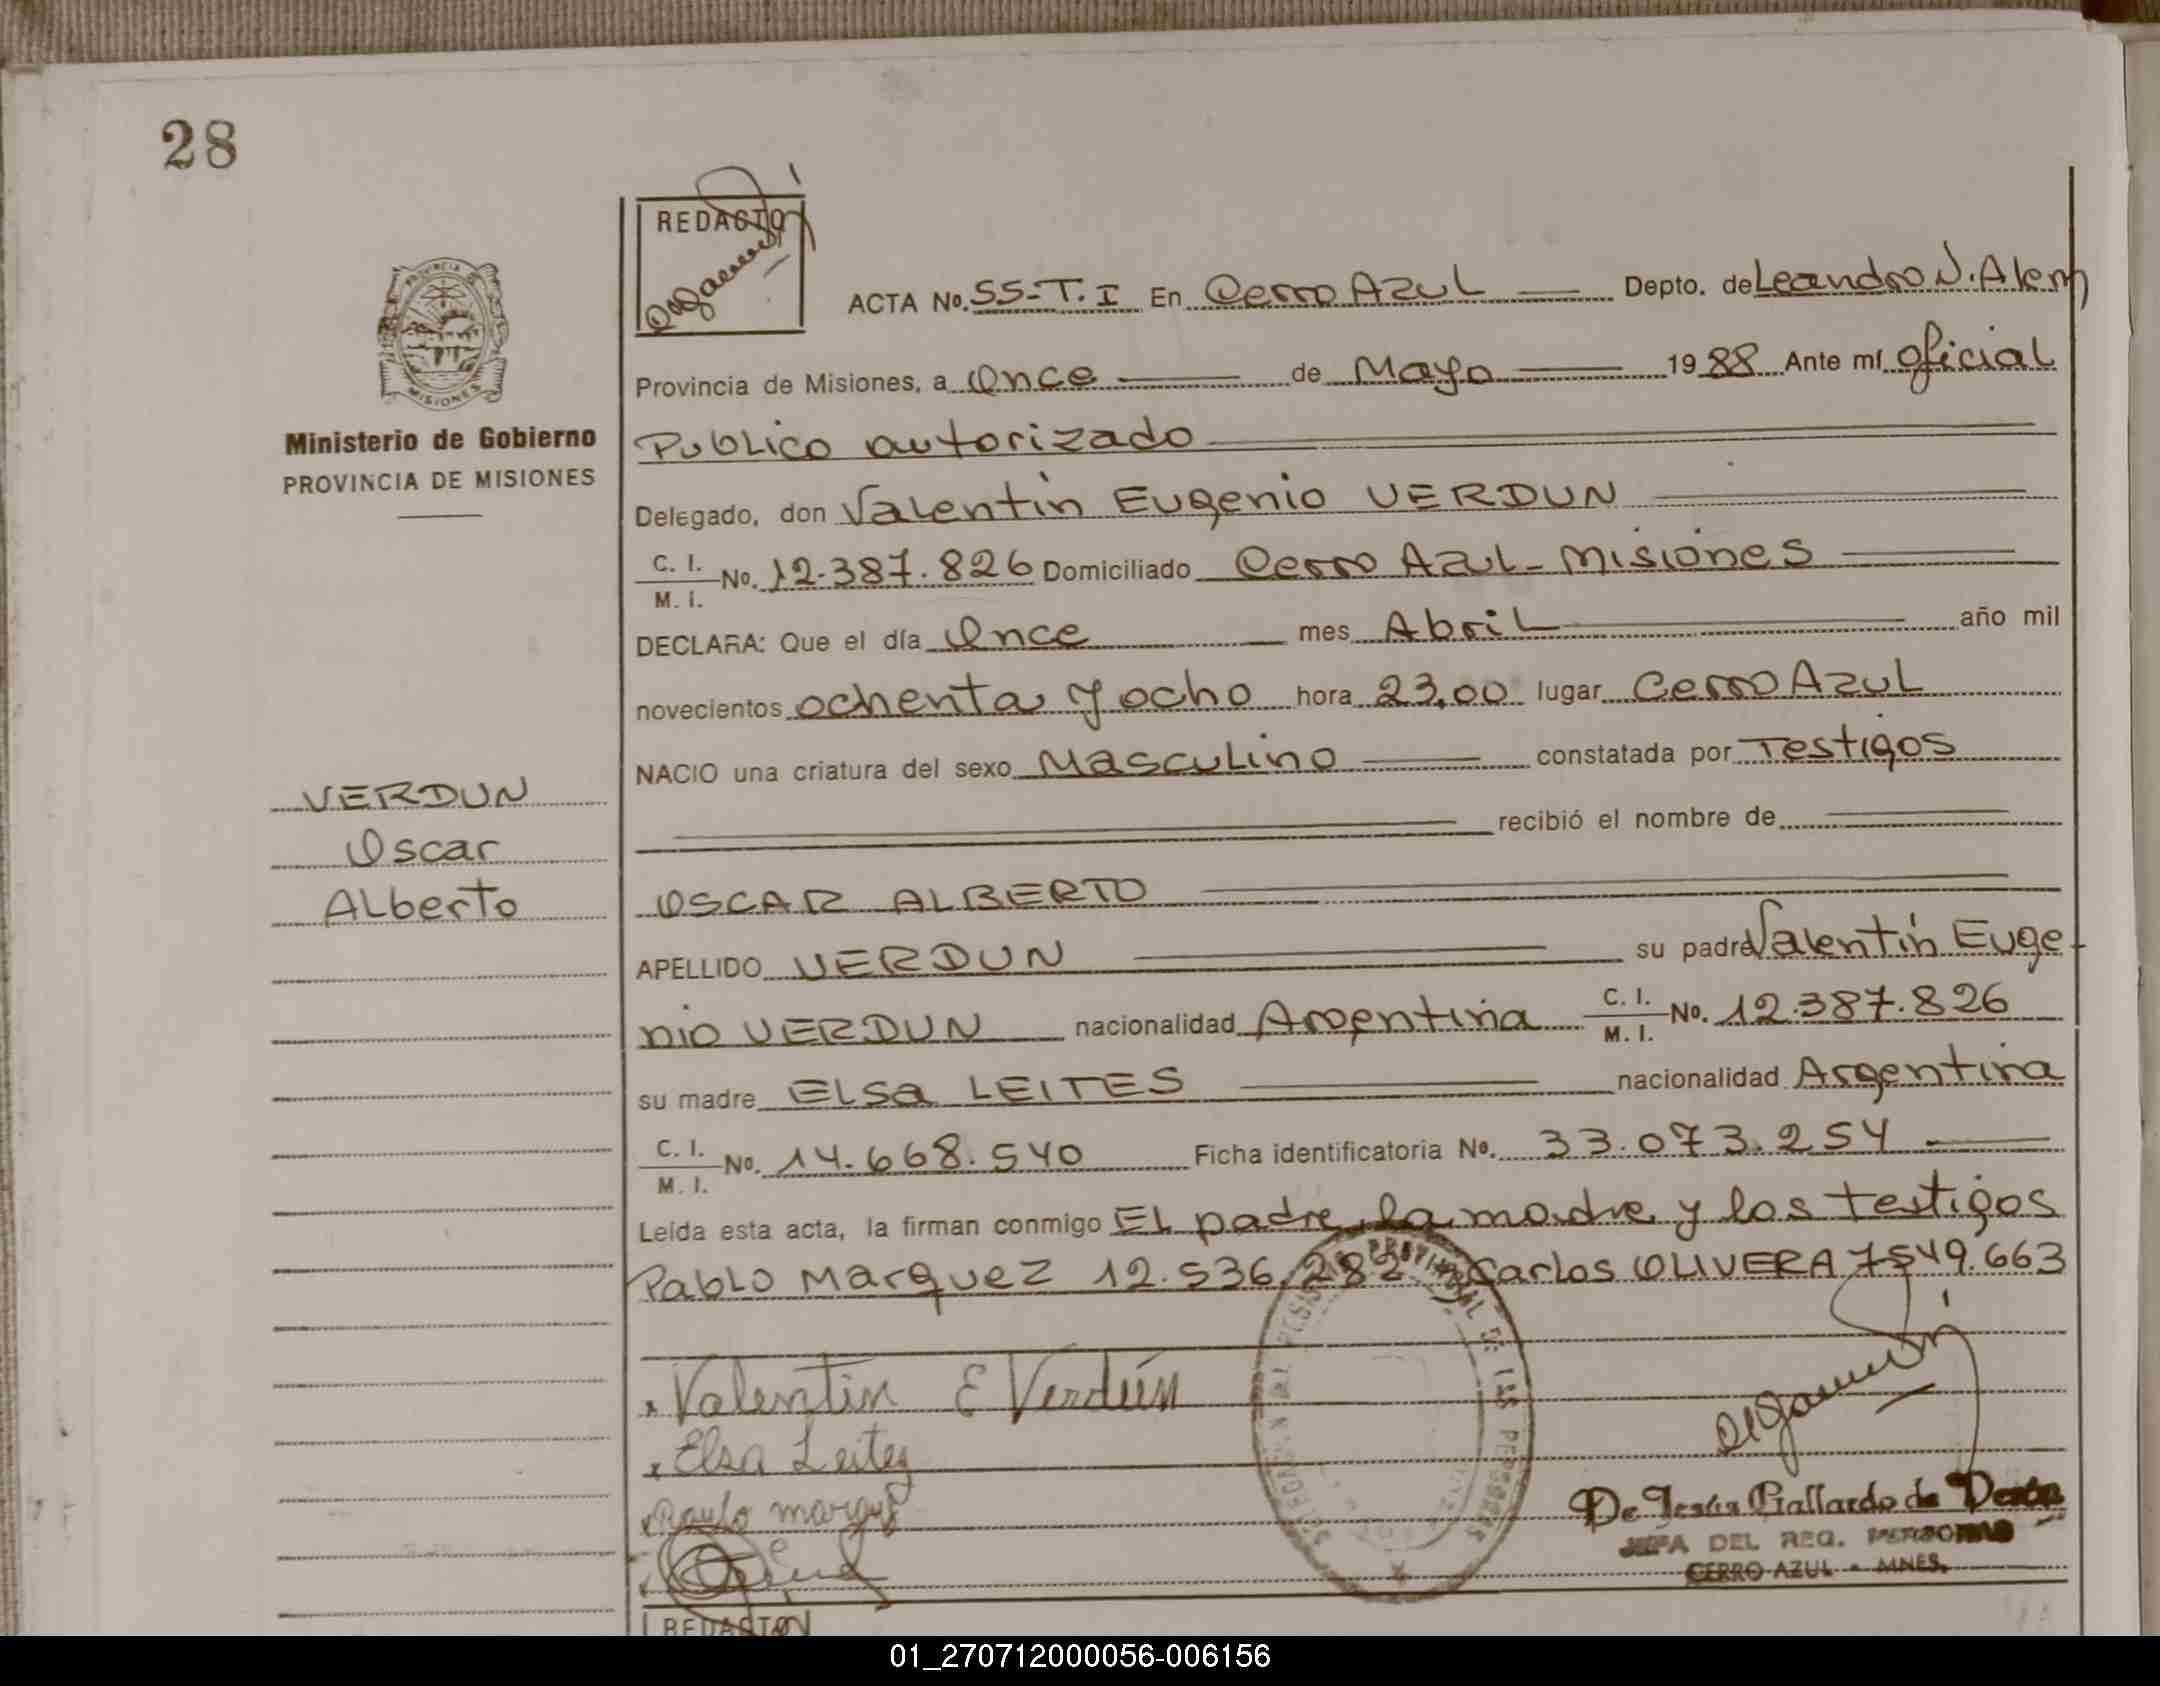 28
REDACTO
ACTA No. 55-T.I En Cerro Azul Depto. de Leandro N. Alem
Provincia de Misiones, a Once de Mayo 1988 Ante mí oficial
Publico autorizado
Delegado, don Valentin Eugenio VERDUN
C. I.
M. I. No. 12.387.826 Domiciliado Cerro Azul - Misiones
DECLARA: Que el día Once mes Abril año mil
novecientos ochenta y ocho hora 23,00 lugar Cerro Azul
NACIO una criatura del sexo Masculino constatada por Testigos
recibió el nombre de
OSCAR ALBERTO
APELLIDO VERDUN su padre Valentín Euge-
nio VERDUN nacionalidad Argentina C. I.
M. I. No. 12.387.826
su madre ELSa LEITES nacionalidad Argentina
C. I.
M. I. No. 14.668.540 Ficha identificatoria No. 33.073.254
Leída esta acta, la firman conmigo El padre, la madre y los testigos
Pablo Marquez 12.536.282 Carlos OLIVERA 7549.663
Valentin E Verdún
Elsa Leites
PROVINCIA DE
MISIONES
Ministerio de Gobierno
PROVINCIA DE MISIONES
VERDUN
Oscar
Alberto
PROVINCIAL DE LAS PERSONAS
De Jesús Gallardo de
JEFA DEL REG. PERSONAS
CERRO AZUL - MNES.
REDACTO
01_270712000056-006156